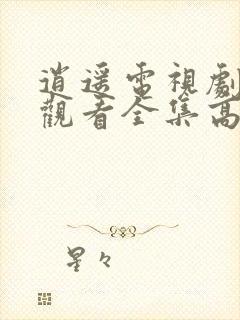 逍遥電視劇
觀看全集高
星々